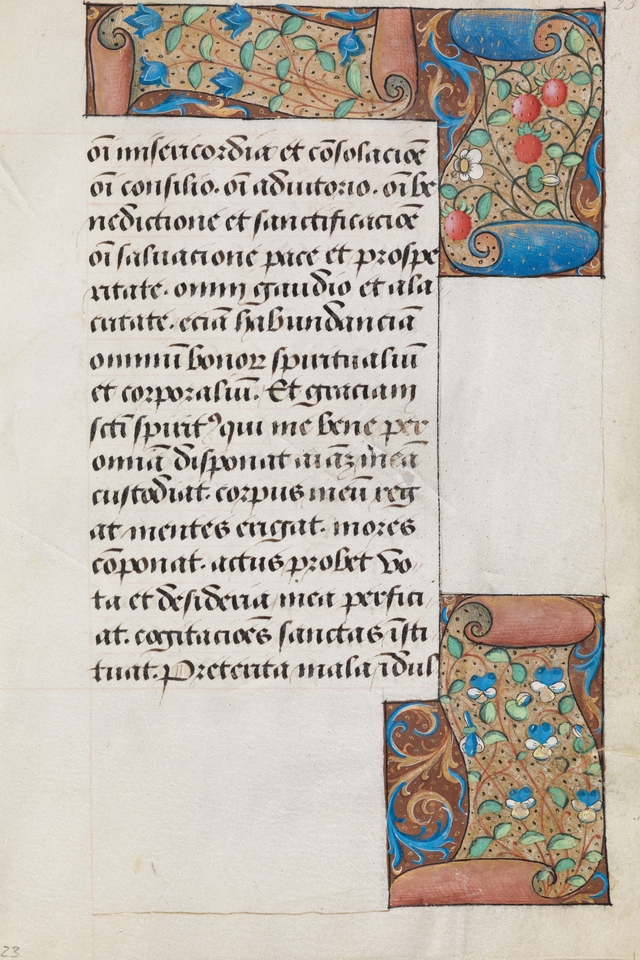 oı̄ misericordia et cōsolacioē
oı̄ consilio. oı̄ adiutorio. oı̄ be
nedictione et sanctificacioē
oı̄ saluacione pace et prospe
ritate. omni gaudio et ala
critate. eciā habundanciā
omniū bonoꝝ spiritualiū
et corporaliū. Et graciam
sctī spiritꝰ qui me bene per
omnā disponat aīaꝫ meā
custodiat. corpus meū reg
at mentes erigat. mores
cōponat. actus probet vo
ta et desideria mea perfici
at. cogitacioēs sanctas īsti
tuat. Preterita mala īdul
23